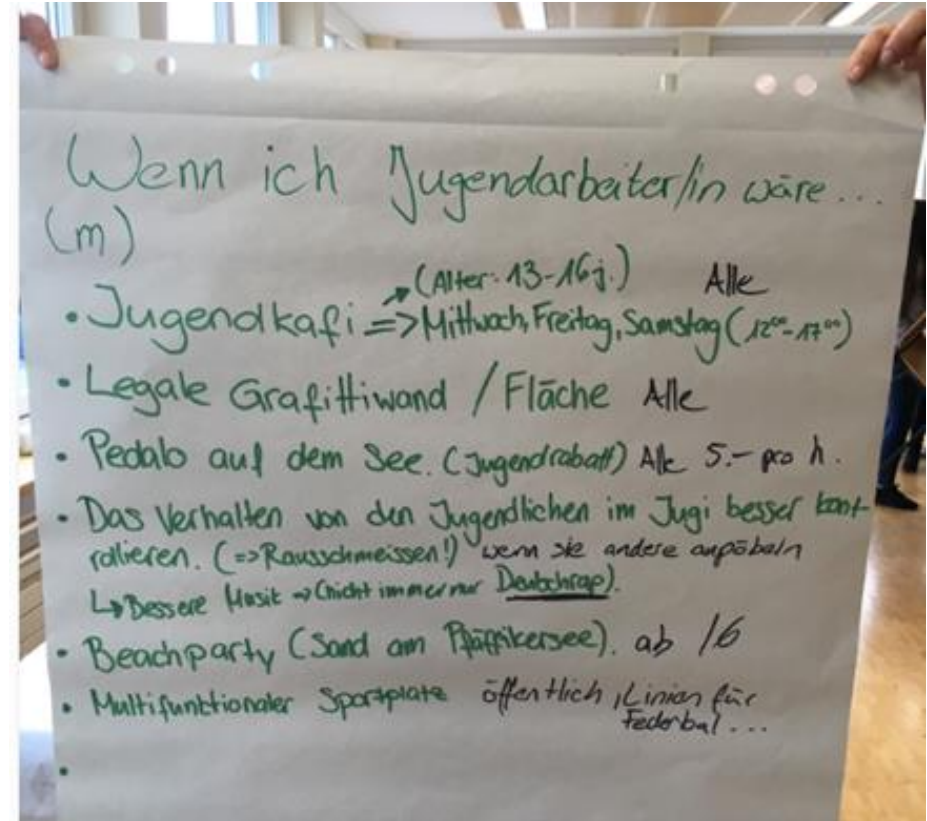 Wenn ich Jugendarbeiter/in wäre...
(m)
(Alter: 13-16j.) Alle
• Jugendkafi => Mittwoch, Freitag, Samstag (12⁰⁰-17⁰⁰)
• Legale Grafittiwand / Fläche Alle
• Pedalo auf dem See. (Jugendrabatt) Alle 5.- pro h.
• Das Verhalten von den Jugendlichen im Jugi besser kont-
rollieren. (=> Rausschmeissen!) wenn sie andere anpöbeln
↳ Bessere Musik => (nicht immer nur Deutschrap).
• Beachparty (Sand am Pfäffikersee). ab 16
• Multifunktionaler Sportplatz öffentlich, Linien für
Federbal...
•